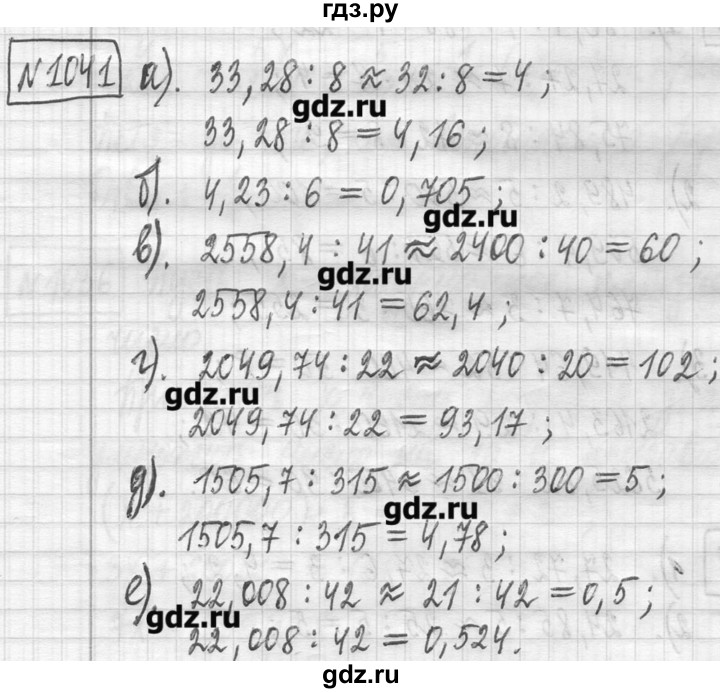 гдз.ру
№1041 а). 33,28 : 8 ≈ 32 : 8 = 4 ;
gdz.ru
33,28 : 8 = 4,16 ;
б). 4,23 : 6 = 0,705 ;
gdz.ru
в). 2558,4 : 41 ≈ 2400 : 40 = 60 ;
gdz.ru
2558,4 : 41 = 62,4 ;
г). 2049,74 : 22 ≈ 2040 : 20 = 102 ;
gdz.ru
2049,74 : 22 = 93,17 ;
д). 1505,7 : 315 ≈ 1500 : 300 = 5 ;
gdz.ru
1505,7 : 315 = 4,78 ;
е). 22,008 : 42 ≈ 21 : 42 = 0,5 ;
gdz.ru
22,008 : 42 = 0,524.
gdz.ru